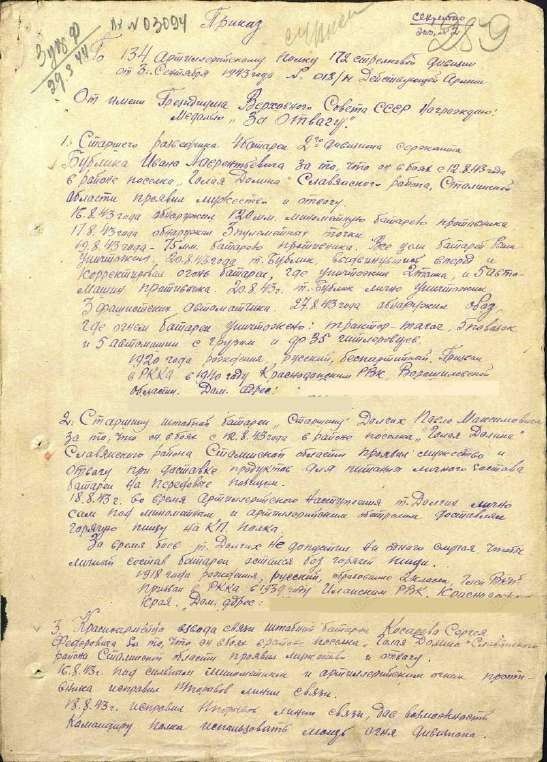 Приказ
№ 03094
секретно
экз. №2
289
29.3.44
По 134 Артиллерийскому полку 172 стрелковой дивизии
от 3. Сентября 1943 года № 018/н Действующая Армия
От имени Президиума Верховного Совета СССР награждаю:
Медалью „За Отвагу."
1. Старшего разведчика батареи 2го дивизиона сержанта
Бублика Ивана за то, что он в боях с 12.8.43 года
в районе поселка „Голая Долина" Славянского района, Сталинской
области проявил мужество и отвагу
16.8.43 года обнаружил 120 мм. минометную батарею противника
17.8.43 года обнаружил 3 пулеметных точки
19.8.43 года - 75 мм батарею противника. Все цели батареей были
уничтожены, 20.8.43 года т. Бублик выдвинувшись вперед и
корректировал огонь батареи, где уничтожил и 5 авто-
машин противника. 20.8.43г. т. Бублик лично уничтожил
3 фашистских автоматчика. 27.8.43 года обнаружил
где огнем батареи уничтожено: трактор-тягач, 3 повозки
и 5 автомашин с грузом и до 35 гитлеровцев.
1920 года рождения, русский, беспартийный. Призван
в РККА в 1940 году Краснодонским РВК Ворошиловской
области. Дом. адрес:
2. Старшину штабной батареи „Старшину" Долгих Павла Максимовича
за то, что он в боях с 12.8.43 года в районе поселка „Голая Долина"
Славянского района Сталинской области проявил мужество и
отвагу при доставке продуктов для питания личного состава
батареи на передовые позиции.
18.8.43г. во время артиллерийского наступления т. Долгих лично
сам под минометным и артиллерийским обстрелом доставлял
горячую пищу на КП полка.
За время боев т. Долгих не допустил ни одного случая чтобы
личный состав батареи остался без горячей пищи.
1918 года рождения, русский, образование класса, член
Призван в РККА в 1939 году РВК, Краснодарского
края. Дом. адрес:
3. Красноармейца взвода связи штабной батареи Косарева Сергея
Федоровича за то, что он в боях в районе поселка „Голая Долина" Славянского
района Сталинской области проявил мужество и отвагу.
16.8.43г. под сильным минометным и артиллерийским огнем проти-
вника исправил порывов линии связи.
18.8.43г. исправил порывов линии связи, дав возможность
командиру полка использовать мощь огня дивизиона.